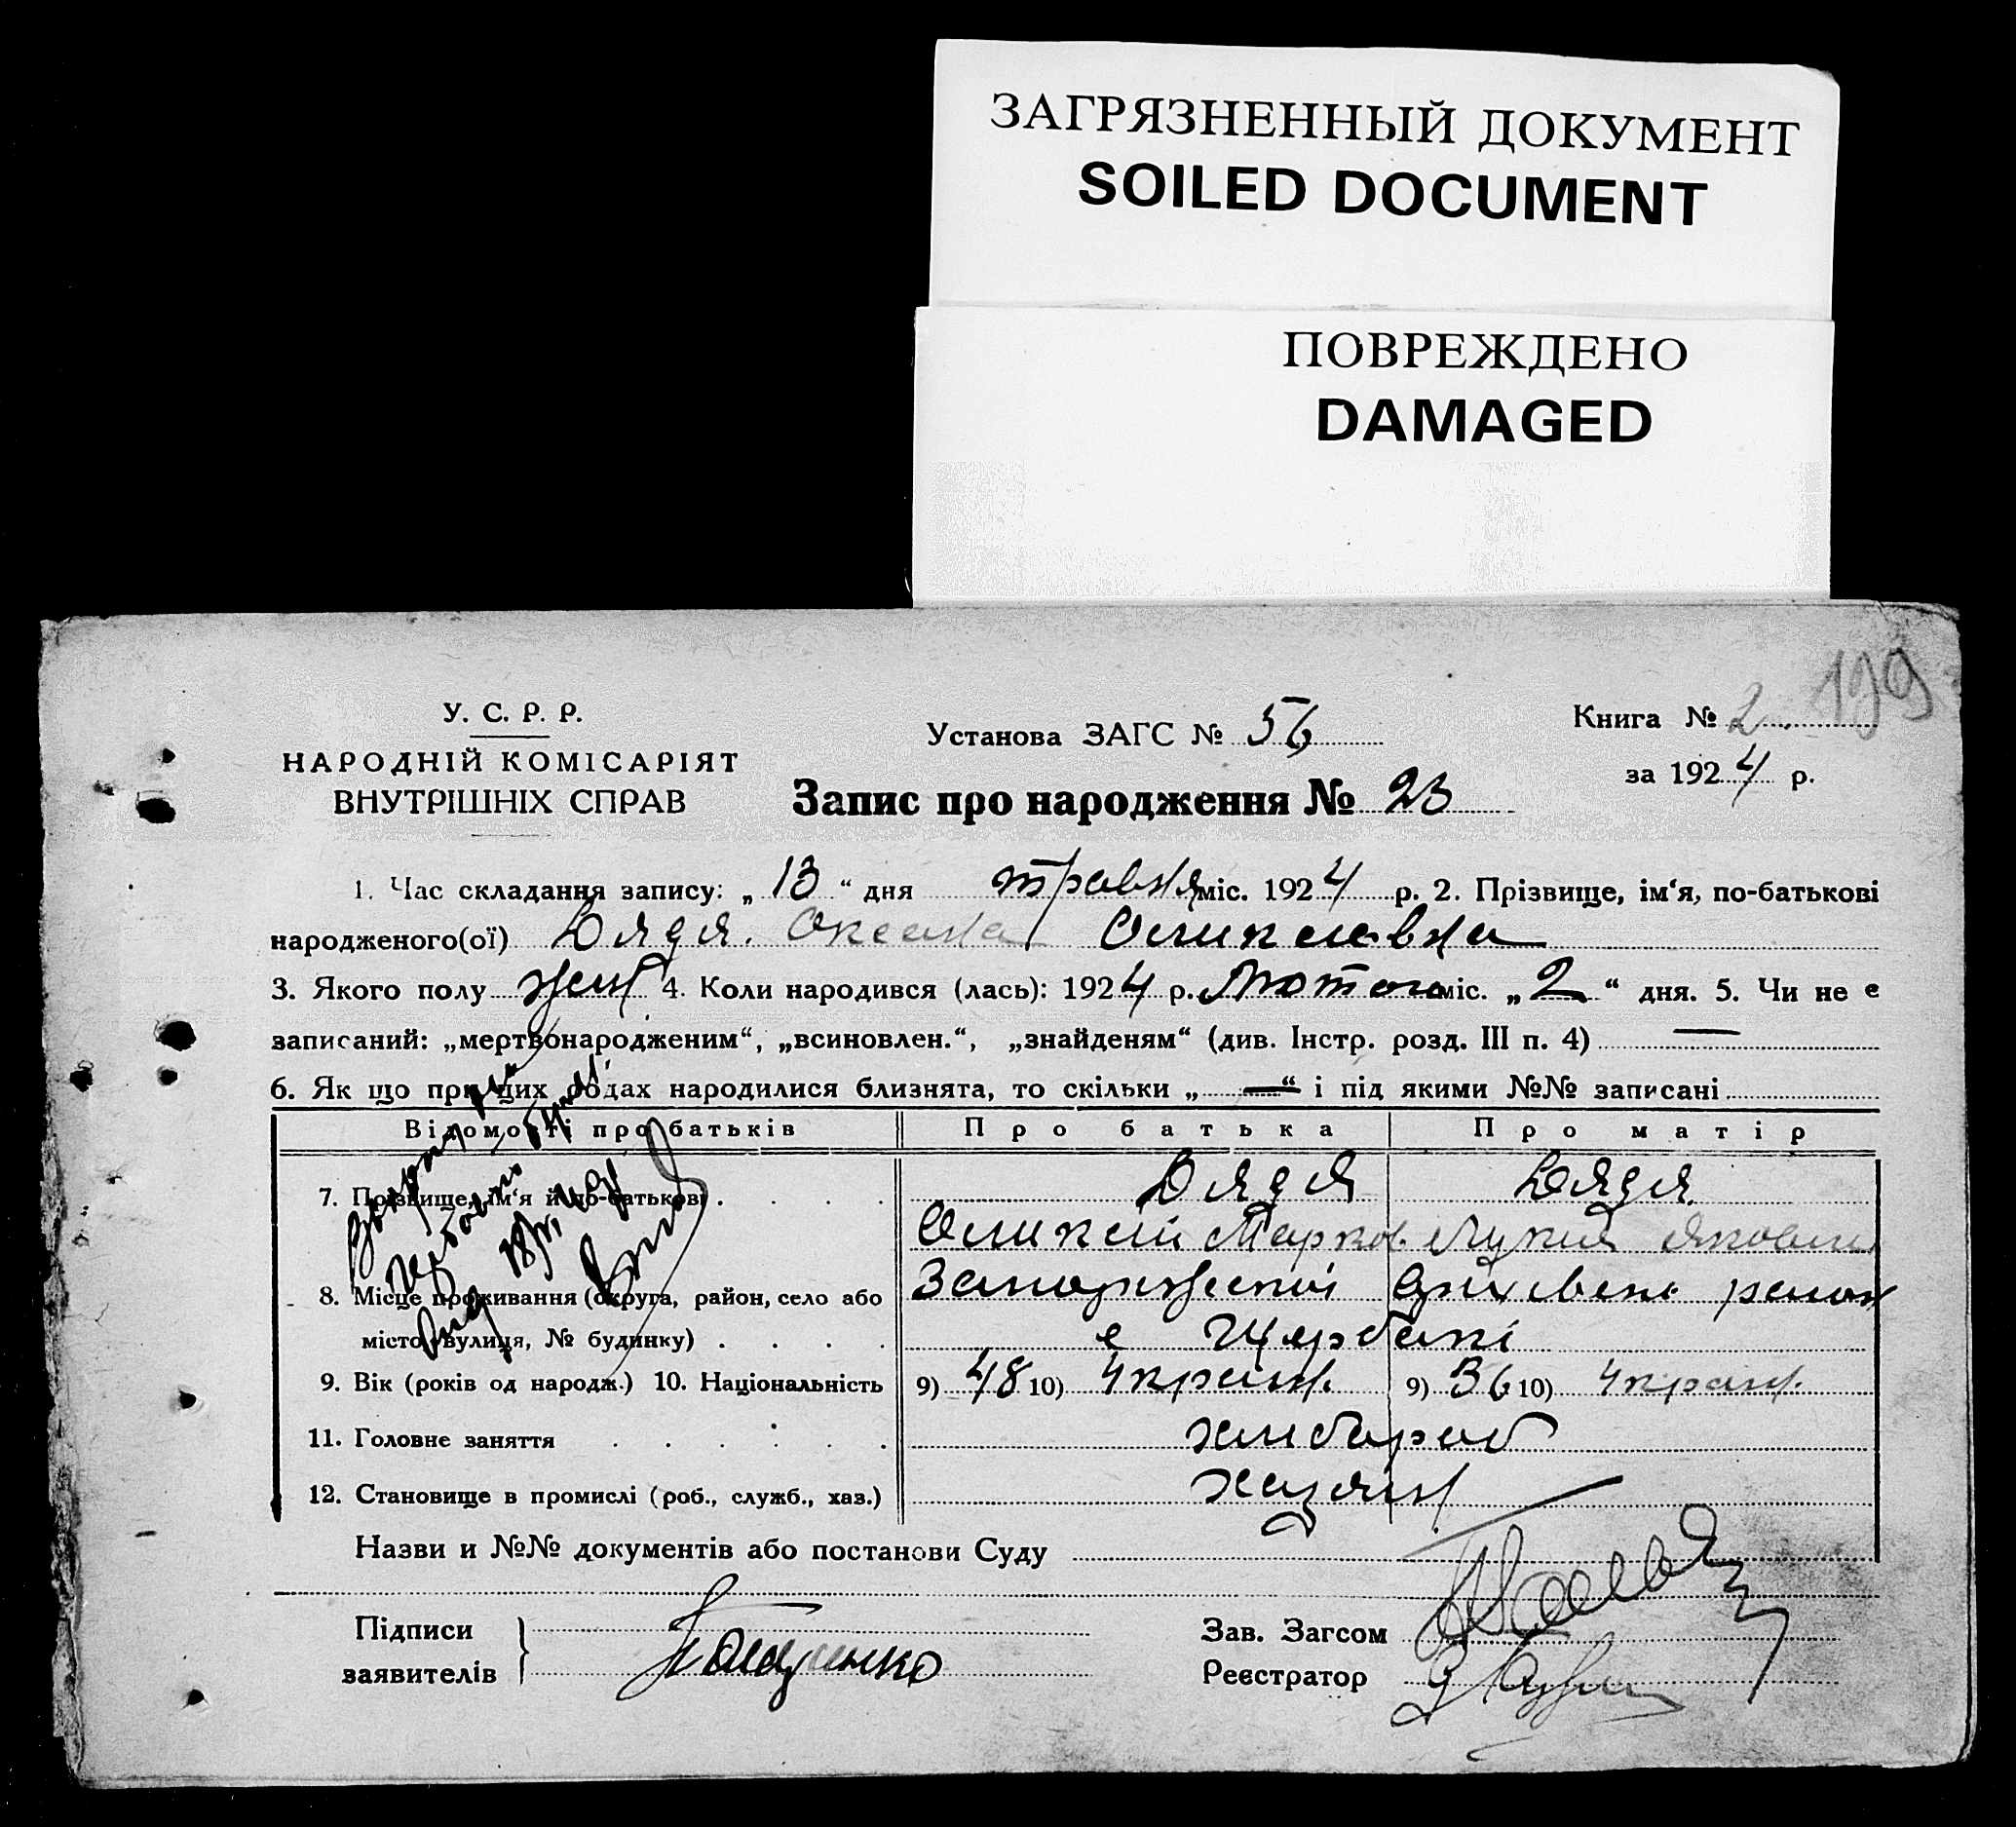 ЗАГРЯЗНЕННЫЙ ДОКУМЕНТ
SOILED DOCUMENT
ПОВРЕЖДЕНО
DAMAGED
199
У. С. Р. Р.
НАРОДНІЙ КОМІСАРІЯТ
ВНУТРІШНІХ СПРАВ
Установа ЗАГС № 56
Книга № 2
за 1924 р.
Запис про народження № 23
1. Час складання запису: „ 13 “ дня травня міс. 1924 р. 2. Прізвище, ім‘я, по-батькові
народженого(ої) Дядя. Оксана
3. Якого полу жен 4. Коли народився (лась): 1924 р. Лютого міс. „ 2 “ дня. 5. Чи не є
записаний: „мертвонародженим“, „всиновлен.“, „знайденям“ (див. Інстр. розд. III п. 4) —
6. Як що при цих родах народилися близнята, то скільки „ — “ і під якими №№ записані
Відомості про батьків Про батька Про матір
7. Прізвище, ім‘я й по-батькові Дядя Дядя
Марков
8. Місце проживання (округа, район, село або
місто, вулиця, № будинку) с Щербакі
9. Вік (років од народж.) 10. Національність 9) 48 10) Украин. 9) 36 10) Украин.
11. Головне заняття хлибороб
12. Становище в промислі (роб., служб., хаз.) хазяин
Назви и №№ документів або постанови Суду
Підписи
заявителів
Зав. Загсом
Реєстратор